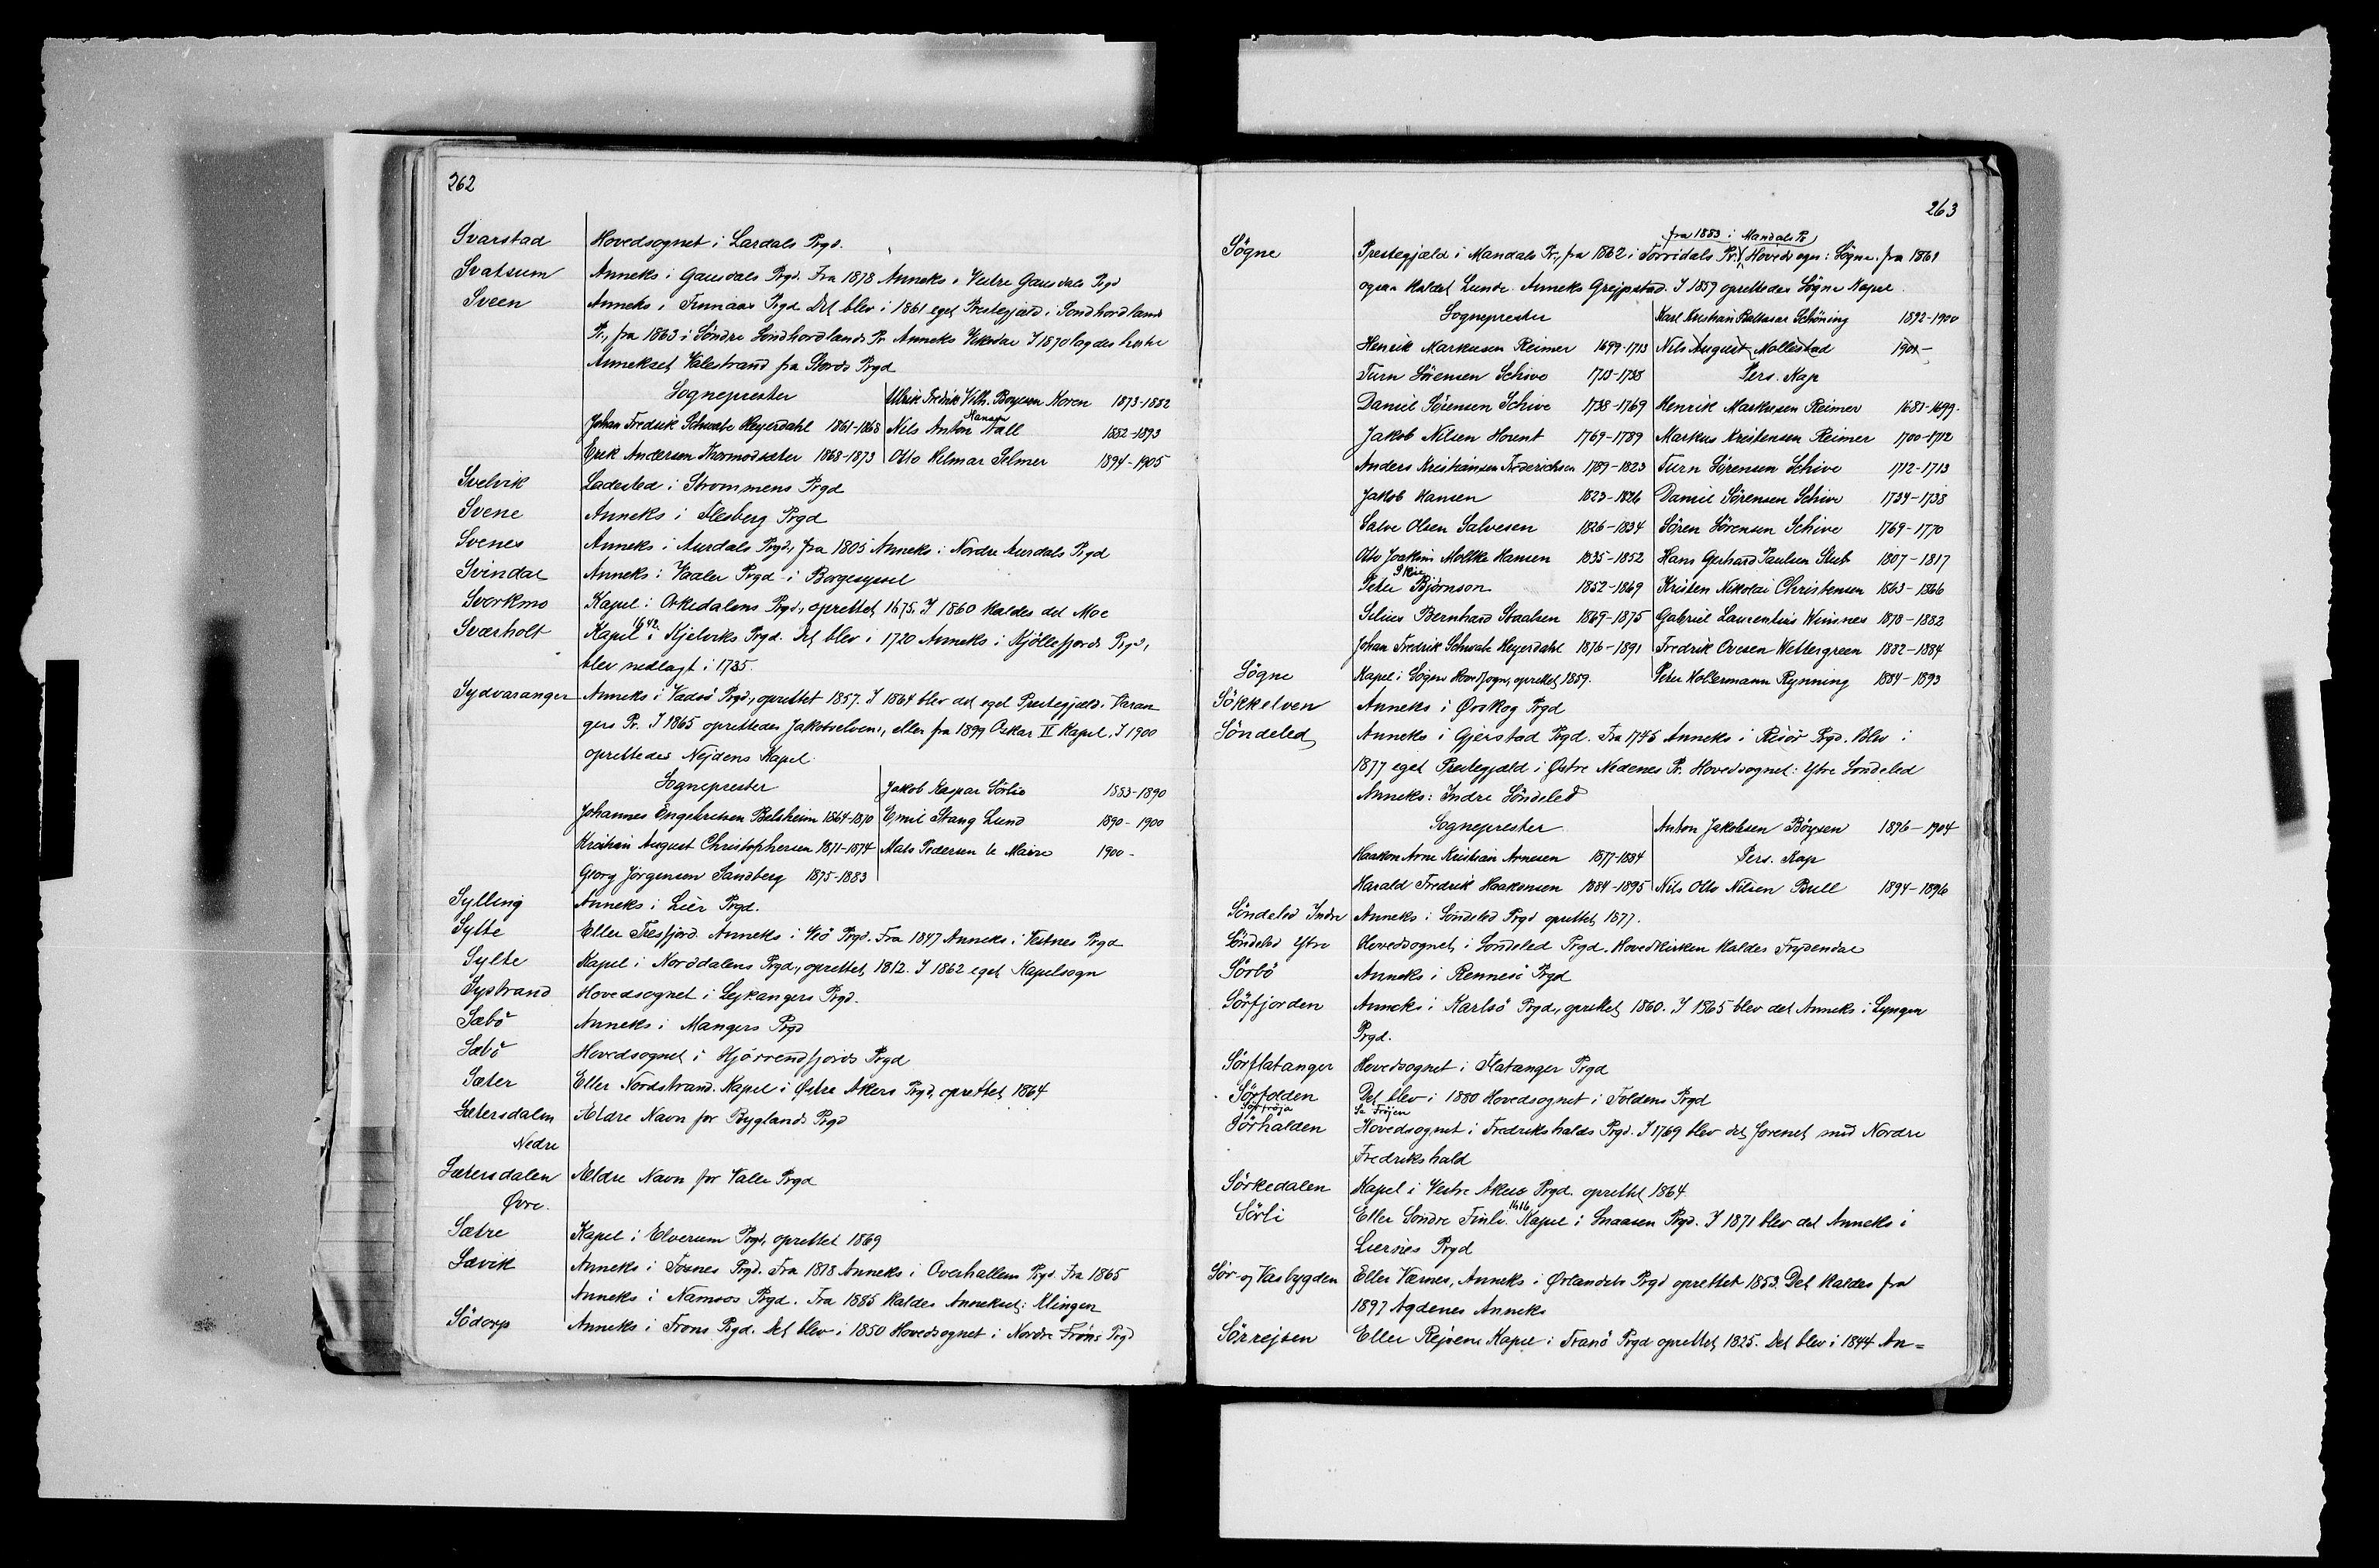 262
Svarstad Hovedsognet i Lardals Prgd.
Svatsum Anneks i Gausdals Prgd. Fra 1878 Anneks i Vestre Gausdals Prgd
Sveen Anneks i Finnaas Prgd. Det blev i 1861 eget Prestegjæld i Söndhordlands
Pr., fra 1863 i Söndre Söndhordlands Pr. Anneks I 1870 lagdes hertil
Annekset Valestrand fra Stords Prgd
Sogneprester Ulrik Fredrik Vilh. Boyesen Koren 1873-1882
Johan Fredrik Schwabe Heyerdahl 1861-1868 Nils Anton Hansen Vall 1882-1893
Erik Andersen Thormodsæter 1868-1873 Otto Hilmar Selmer 1894-1905
Svelvik Ladested i Strommens Prgd
Svene Anneks i Flesberg Prgd
Svenes Anneks i Aurdals Prgd, fra 1805 Anneks i Nordre Aurdals Prgd
Svindal Anneks i Vaaler Prgd i Borgesyssel
Svorkmo Kapel i Orkedalens Prgd, oprettet 1675. I 1860 kaldes det Moe
Sværholt Kapel 1642 i Kjelviks Prgd. Det blev i 1720 Anneks i Kjöllefjords Prgd,
blev nedlagt i 1735.
Sydvaranger Anneks i Vadsö Prgd, oprettet 1857. I 1864 blev det eget Prestegjæld i Varan
gers Pr. I 1865 oprettedes Jakobselvens, eller fra 1899 Oskar II Kapel. I 1900
oprettedes Nejdens Kapel.
Sogneprester Jakob Kaspar Sörlie 1883-1890
Johannes Engebretsen Belsheim 1864-1870 Emil Stang Lund 1890-1900
Kristian August Christophersen 1871-1874 Mats Pedersen le Maire 1900-
Georg Jörgensen Sandberg 1875-1883
Sylling Anneks i Lier Prgd.
Sylte Eller Tresfjord. Anneks i Veö Prgd. Fra 1847 Anneks i Vestnes Prgd
Sylte Kapel i Norddalens Prgd, oprettet 1812. I 1862 eget Kapelsogn
Systrand Hovedsognet i Lejkangers Prgd.
Sæbö Anneks i Mangers Prgd
Sæbö Hovedsognet i Hjörrendfjords Prgd
Sæter Eller Nordstrand. Kapel i Østre Akers Prgd, oprettet 1864
Sætersdalen Ældre Navn for Byglands Prgd
Nedre
Sætersdalen Ældre Navn for Valle Prgd
Øvre.
Sætre Kapel i Elverum Prgd, oprettet 1869
Sævik Anneks i Fosnes Prgd. Fra 1818 Anneks i Overhallens Prgd. Fra 1865
Anneks i Namsos Prgd. Fra 1885 kaldes Annekset: Klingen
Södorp Anneks i Frons Prgd. Det blev i 1850 Hovedsognet i Nordre Frons Prgd
263
fra 1883 i Mandals Pr
Sögne Prestegjæld i Mandals Pr., fra 1862 i Torridals Pr. Hovedsogn: Sögne. fra 1861
ogsaa kaldet Lunde. Anneks Grejpstad. I 1859 oprettedes Sögne Kapel
Sogneprester Karl Kristian Baltasar Schöning 1892-1900
Henrik Markusen Reimer 1699-1713 Nils August Mollestad 1901-
Turn Sörensen Schive 1713-1738 Pers. Kap
Daniel Sörensen Schive 1738-1769 Henrik Markusen Reimer 1683-1699.
Jakob Nilsen Horent 1769-1789 Markus Kristensen Reimer 1700-1712
Anders Kristiansen Frederichsen 1789-1823 Turn Sörensen Schive 1712-1713
Jakob Hansen 1823-1826 Daniel Sörensen Schive 1734-1738
Salve Olsen Salvesen 1826-1834 Sören Sörensen Schive 1769-1770
Otto Joakim Moltke Hansen 1835-1852 Hans Gerhard Paulsen Stub 1807-1817
Peder Björnson 1852-1869 Kristen Nikolai Christensen 1863-1866
Silius Bernhard Staalsen 1869-1875 Gabriel Laurentius Wimnes 1878-1882
Johan Fredrik Schwabe Heyerdahl 1876-1891 Fredrik Ovesen Wettergreen 1882-1884
Sögne Kapel i Sögne Hovedsogn, oprettet 1859. Peter Hollermann Rynning 1884-1893
Sökkelven Anneks i Ørskog Prgd
Söndeled Anneks i Gjerstad Prgd. Fra 1745 Anneks i Risör Prgd. Blev i
1877 eget Prestegjæld i Østre Nedenes Pr. Hovedsognet: Ytre Söndeled
Anneks: Indre Söndeled
Sogneprester Anton Jakobsen Böyesen 1896-1904
Haakon Arne Kristian Arnesen 1877-1884 Pers. Kap
Harald Fredrik Haakonsen 1884-1895 Nils Otto Nilsen Bull 1894-1896
Söndeled Indre Anneks i Söndeled Prgd oprettet 1877.
Söndeled Ytre Hovedsognet i Söndeled Prgd. Hovedkirken kaldes Frydendal
Sörbö Anneks i Rennesö Prgd
Sörfjorden Anneks i Karlsö Prgd, oprettet 1860. I 1865 blev det Anneks i Lyngen
Prgd.
Sörflatanger Hovedsognet i Flatanger Prgd
Sörfolden Det blev i 1880 Hovedsognet i Foldens Prgd
Sörfröja Se Fröjen
Sörhalden Hovedsognet i Fredrikshalds Prgd. I 1769 blev det forenet med Nordre
Fredrikshald
Sörkedalen Kapel i Vestre Akers Prgd. oprettet 1864
Sörli Eller Söndre Finli. Kapel i Snaasen Prgd. I 1871 blev det Anneks i
Liernes Prgd
Sör- og Vasbygden Eller Værnes, Anneks i Ørlandets Prgd oprettet 1853. Det kaldes fra
1897 Agdenes Anneks
Sörrejsen Eller Rejsens Kapel i Tranö Prgd oprettet 1825. Det blev i 1844 An=